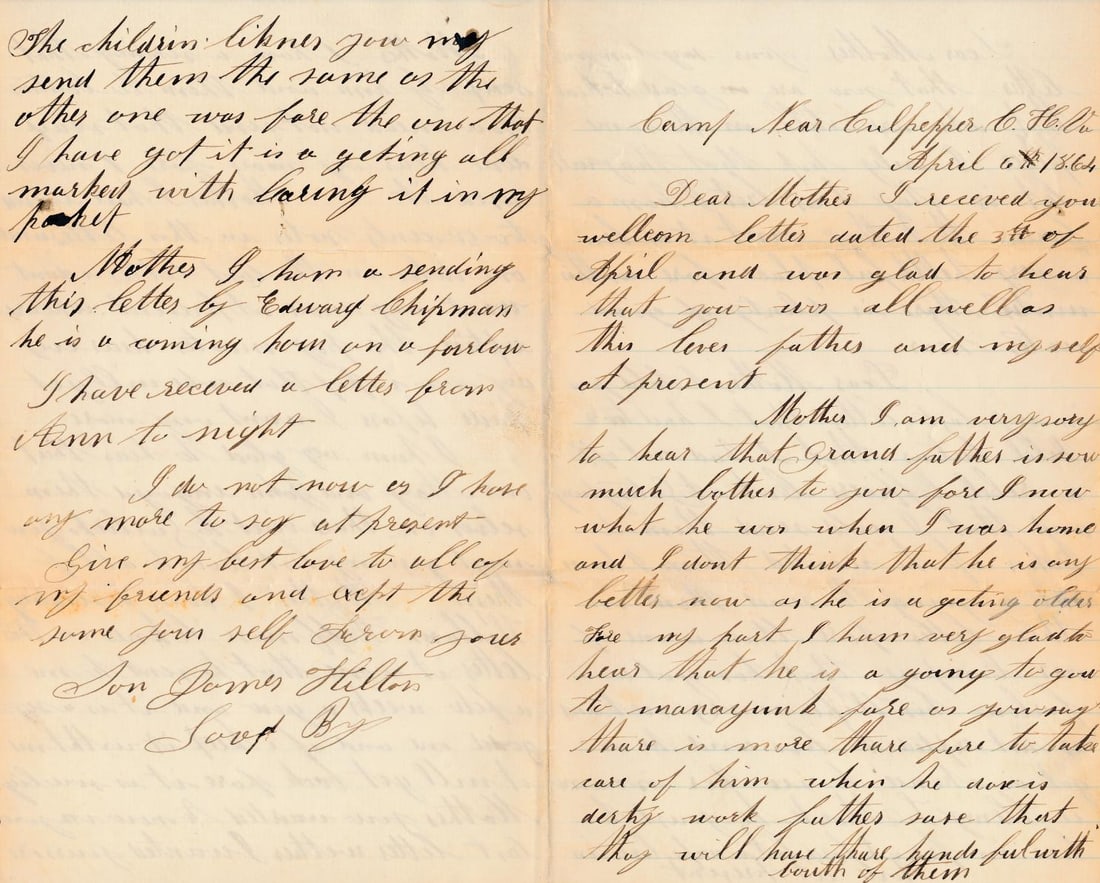 Camp Near Culpepper C. H. Va
April 6th 1864
Dear Mother I receved you
wellcom letter dated the 3th of
April and was glad to hear
that you was all well as
this leves father and my self
at present
Mother I am very sory
to hear that Grand father is sow
much bother to yow fore I now
what he was when I was home
and I dont think that he is any
better now as he is a geting older
Fore my part I ham very glad to
hear that he is a going to gow
to manayunk fore as yow say
thare is more thare fore to take
care of him when he dose is
derty work father sase that
thay will have thare hands ful with
bouth of them
The childrin likner yow may
send them the same as the
other one was fore the one that
I have got it is a geting all
marked with caring it in my
pocket
Mother I ham a sending
this letter by Edward Chipman
he is a coming hom on a furlow
I have receved a letter from
Ann to night
I do not now as I have
any more to say at present
Give my best love to all of
my friends and exept the
same your self From your
Son James Hilton
Good By